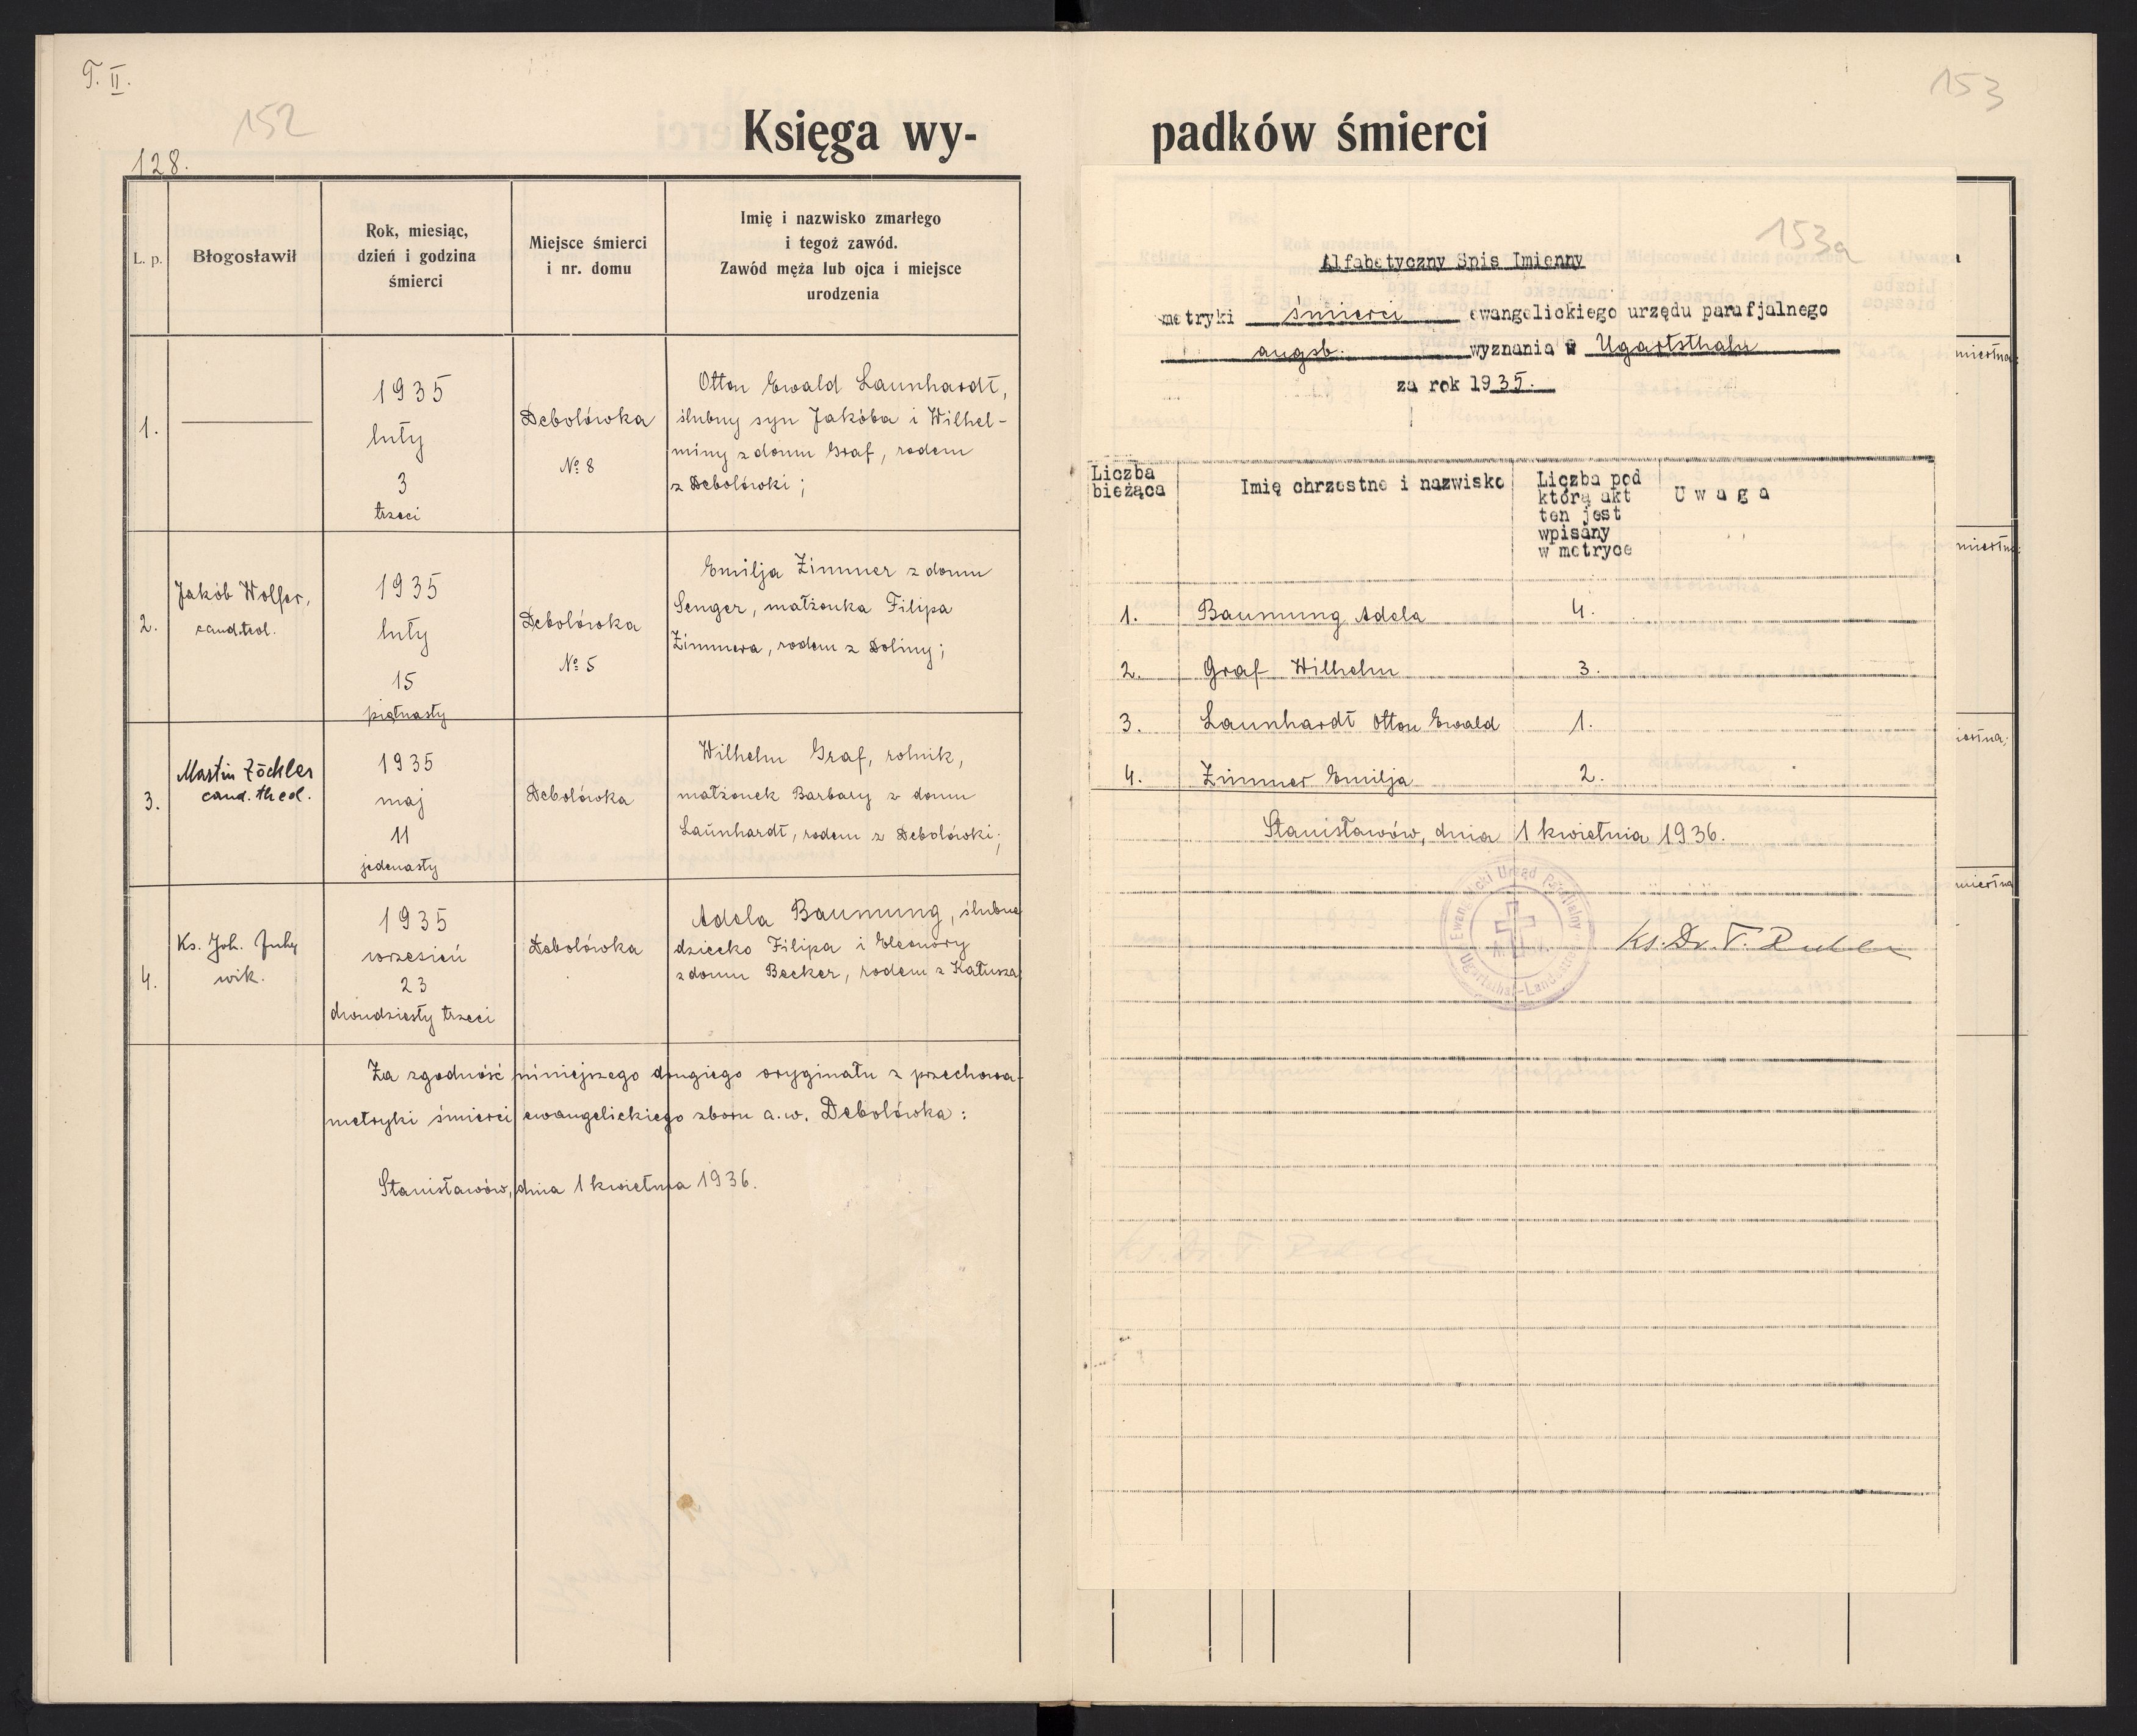 T. II.
152
153
Księga wy-
padków śmierci
128.
L. p.
Błogosławił
Rok, miesiąc,
dzień i godzina
śmierci
Miejsce śmierci
i nr. domu
Imię i nazwisko zmarłego
i tegoż zawód.
Zawód męża lub ojca i miejsce
urodzenia
1.
1935
luty
3
trzeci
Debolówka
№ 8
Otton Ewald Launhardt,
ślubny syn Jakóba i Wilhel-
miny z domu Graf, rodem
z Debolówki;
2.
Jakób Wolfer,
cand. teol.
1935
luty
15
piętnasty
Debolówka
№ 5
Emilja Zimmer z domu
Senger, małżonka Filipa
Zimmera, rodem z Doliny;
3.
Martin Zöckler
cand. theol.
1935
maj
11
jedenasty
Debolówka
Wilhelm Graf, rolnik,
małżonek Barbary z domu
Launhardt, rodem z Debolówki;
4.
Ks. Joh.
wik.
1935
wrzesień
23
dwudziesty trzeci
Debolówka
Adela Baumung, ślubne
dziecko Filipa i Eleonory
z domu Becker, rodem z Kałusza
Za zgodność niniejszego drugiego oryginału z przechowa-
metryki śmierci ewangelickiego zboru a. w. Debolówka:
Stanisławów, dnia 1 kwietnia 1936.
153a
Alfabetyczny Spis Imienny
metryki śmierci ewangelickiego urzędu parafjalnego
augsb. wyznania w Ugartsthalu
za rok 1935.
Liczba
bieżąca
Imię chrzestne i nazwisko
Liczba pod
którą akt
ten jest
wpisany
w metryce
U w a g a
1. Baumung Adela 4.
2. Graf Wilhelm 3.
3. Launhardt Otton Ewald 1.
4. Zimmer Emilja 2.
Stanisławów, dnia 1 kwietnia 1936.
Ewangelicki Urząd Parafialny
Ugartsthal-Landestreu
Ks. Dr. T.